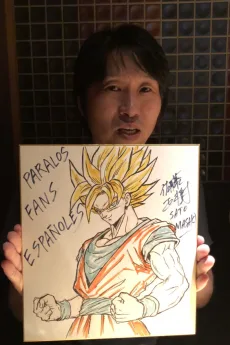 PARALOS
FANS
ESPAÑOLES
佐藤
正樹
SATO
MASAKI